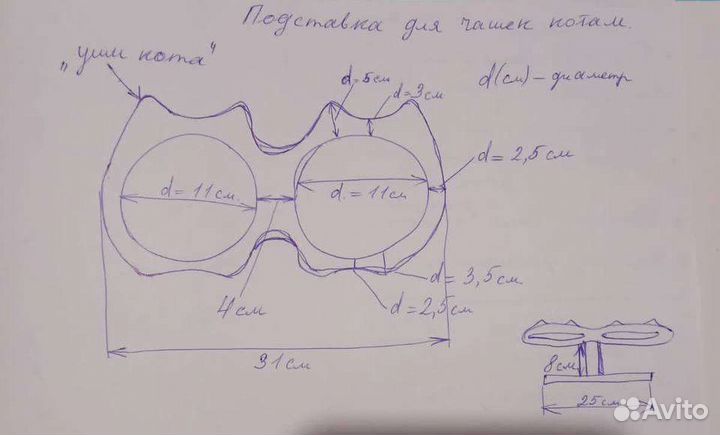 Подставка для чашек котам.
„уши кота"
d=5см
d=3см
d(см) – диаметр
d=2,5см
d=11см.
d.=11см
d=3,5см
d=2,5см
4см
31см
8см
25см
Avito